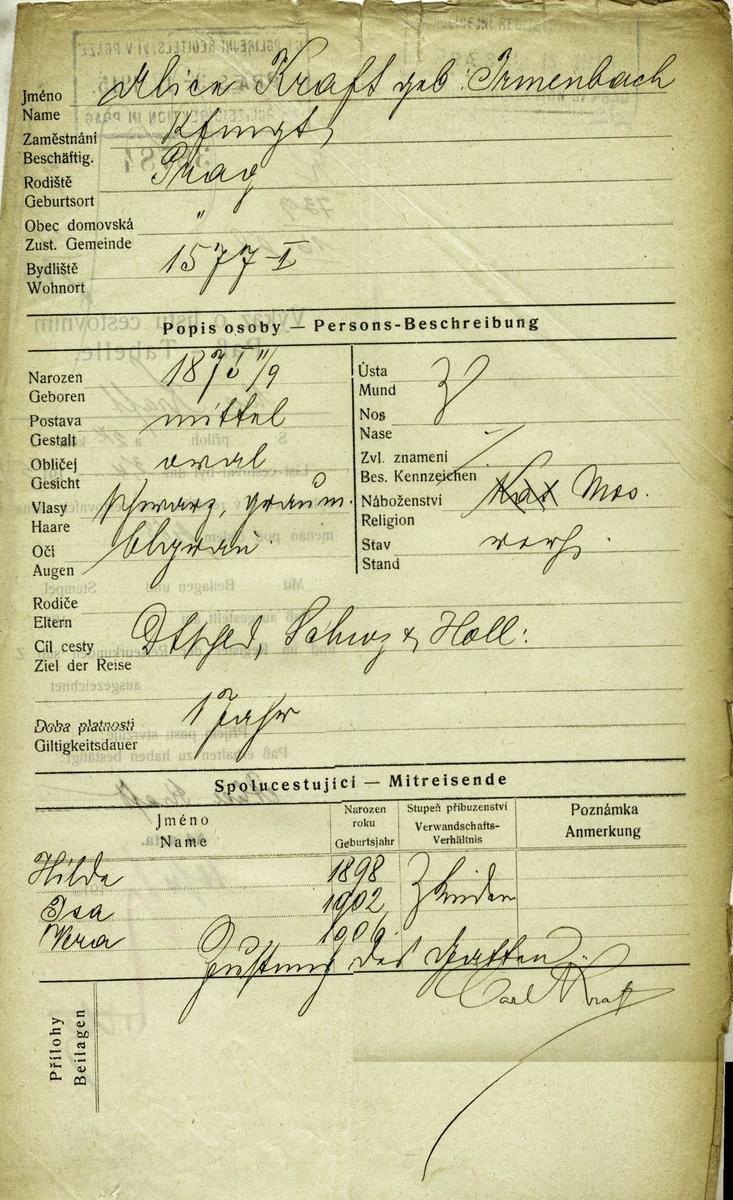 Jméno
Name Alice Kraft geb. Irmenbach
Zaměstnání
Beschäftig.
Rodiště Prag
Geburtsort
Obec domovská "
Zust. Gemeinde
Bydliště 1577-I
Wohnort
Popis osoby — Persons-Beschreibung
Narozen 1875 11/9
Geboren
Postava mittel
Gestalt
Obličej oval
Gesicht
Vlasy schwarz, graum.
Haare
Oči blgrau
Augen
Ústa
Mund
Nos
Nase
Zvl. znamení /
Bes. Kennzeichen
Náboženství Kat Mos.
Religion
Stav verh.
Stand
Rodiče
Eltern
Cíl cesty Dtschld, Schwz & Holl:
Ziel der Reise
Doba platnosti 1 Jahr
Giltigkeitsdauer
Spolucestující — Mitreisende
Jméno
Name
Narozen
roku
Geburtsjahr
Stupeň příbuzenství
Verwandschafts-
Verhältnis
Poznámka
Anmerkung
Hilda 1898 Kinder
Isa 1902
Vera 1906
Zustimg des Gatten
Carl Kraft
Přílohy
Beilagen